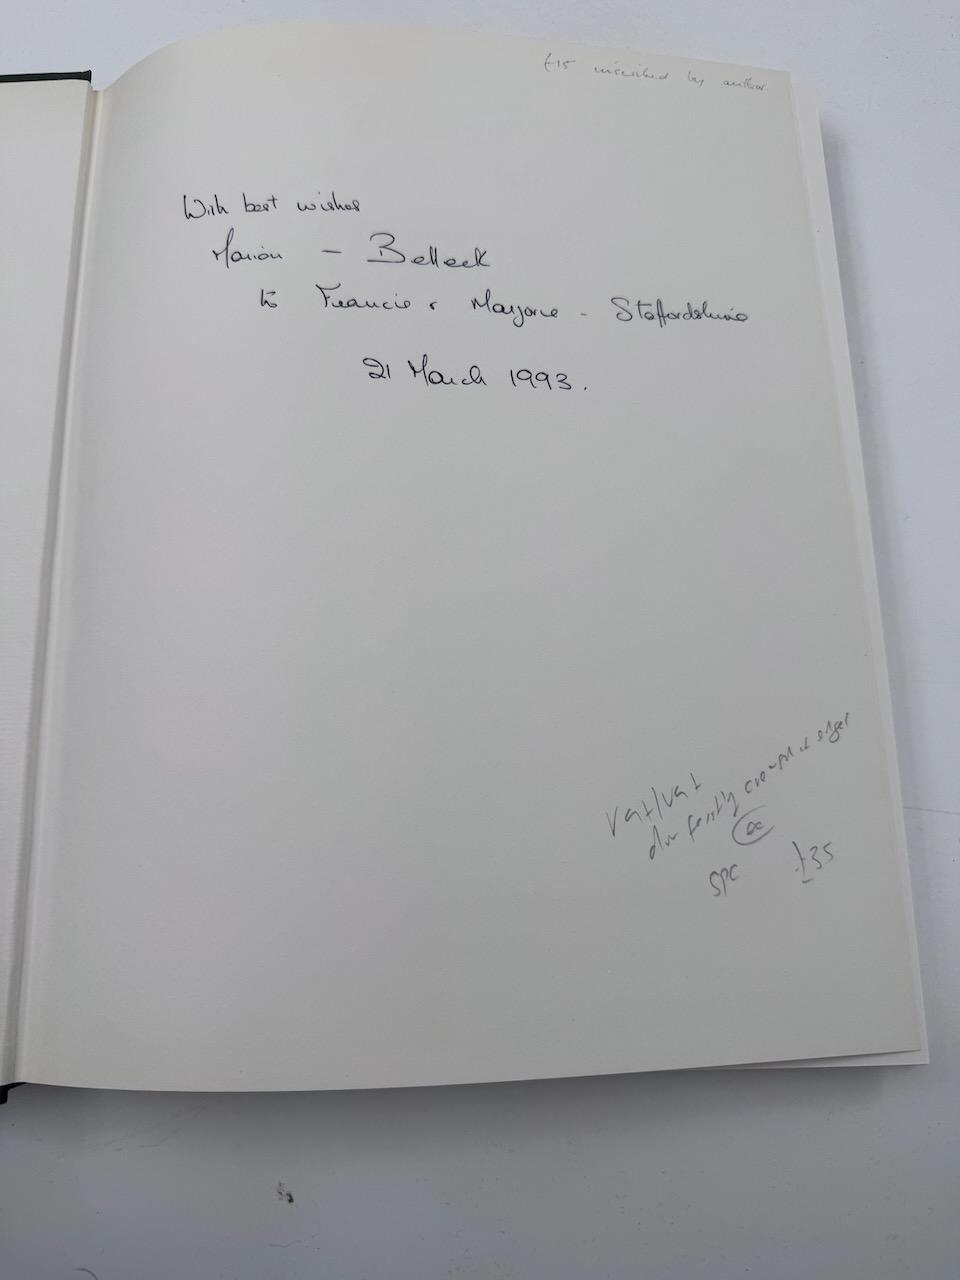 £15 inscribed by author
With best wishes
Marion - Belleek
to Francis & Marjorie - Staffordshire
21 March 1993.
Vgt/vgt
d/w
SPC £35